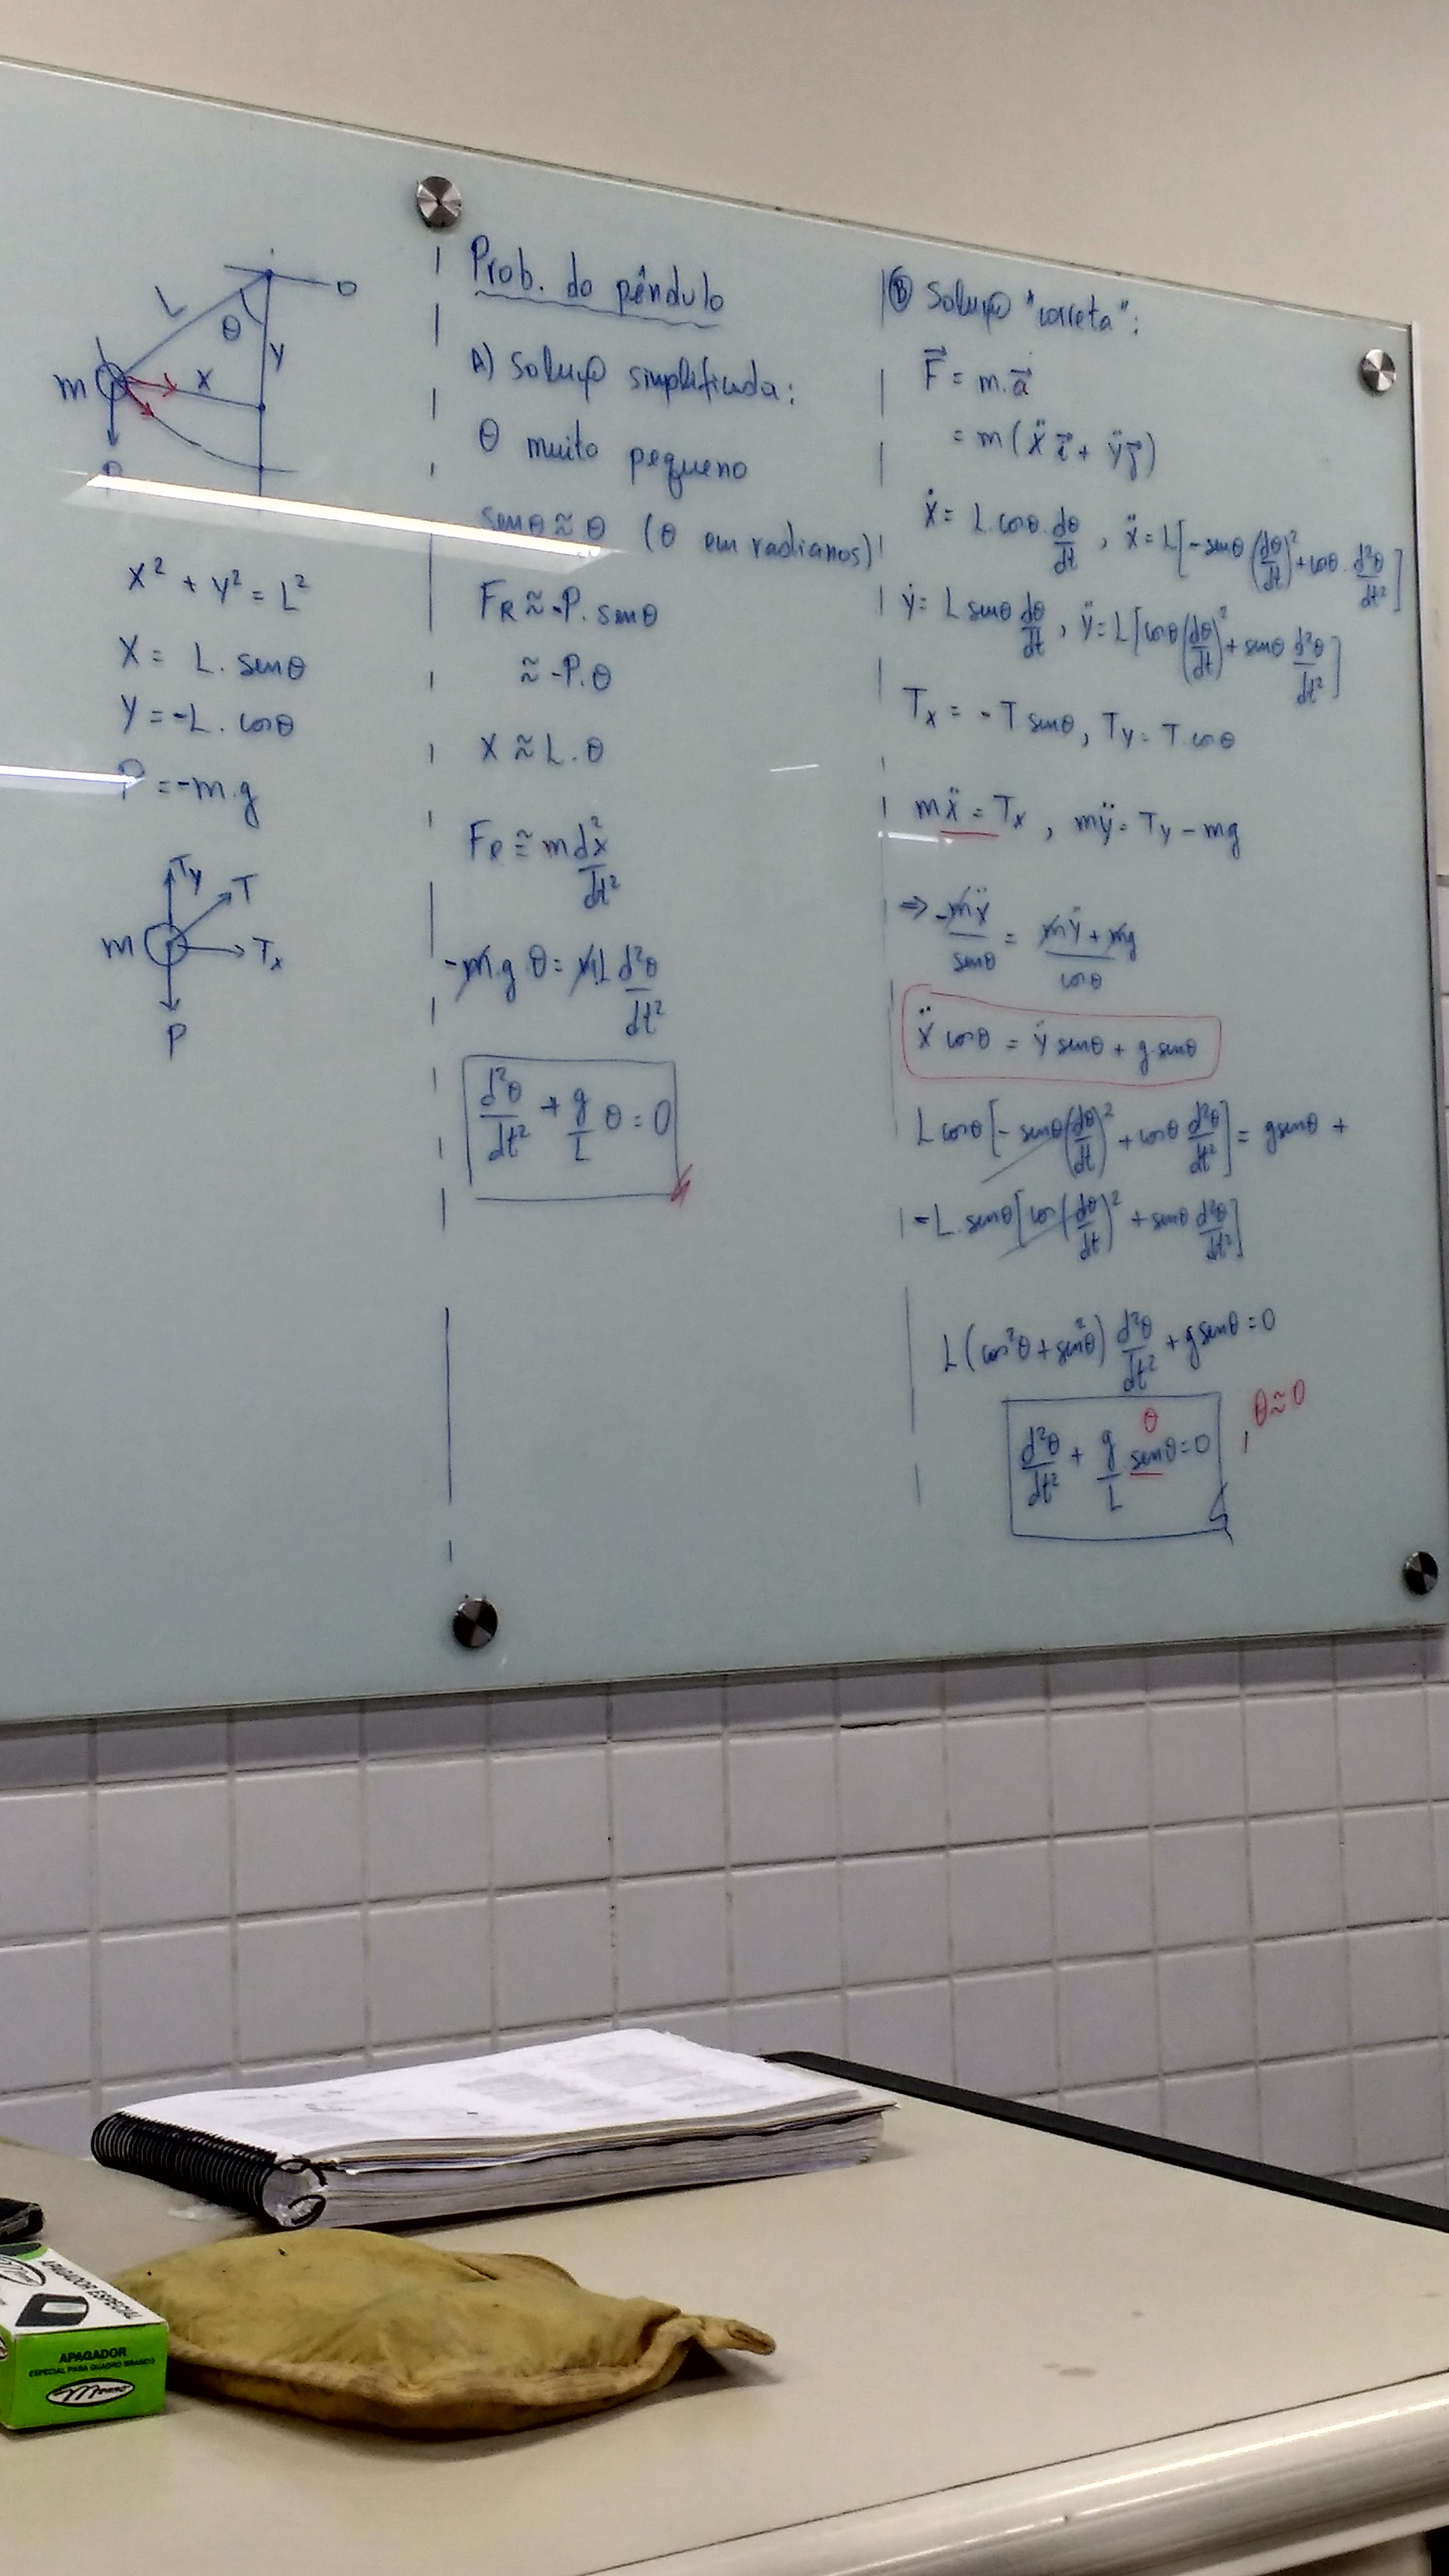 L
θ
0
Y
X
m
P
X² + Y² = L²
X = L. senθ
Y = -L. cosθ
P = -m.g
Ty
T
m
Tx
P
Prob. do pêndulo
A) Solução simplificada:
θ muito pequeno
senθ ≈ θ (θ em radianos)
FR ≈ -P. senθ
≈ -P.θ
X ≈ L.θ
FR ≅ m d²x/dt²
-m.g.θ = mL d²θ/dt²
d²θ/dt² + g/L θ = 0
B) Solução "correta":
F⃗ = m.a⃗
= m(ẍ i⃗ + ÿ j⃗)
ẋ = L.cosθ.dθ/dt, ẍ = L[-senθ(dθ/dt)² + cosθ.d²θ/dt²]
ẏ = L senθ dθ/dt, ÿ = L[cosθ(dθ/dt)² + senθ d²θ/dt²]
Tx = -T senθ, Ty = T cosθ
mẍ = Tx, mÿ = Ty - mg
⇒ -mẍ/senθ = mÿ + mg/cosθ
ẍ cosθ = ÿ senθ + g senθ
L cosθ[-senθ(dθ/dt)² + cosθ d²θ/dt²] = g senθ +
-L.senθ[cos(dθ/dt)² + senθ d²θ/dt²]
L(cos²θ + sen²θ) d²θ/dt² + g senθ = 0
θ
d²θ/dt² + g/L senθ = 0, θ ≈ 0
APAGADOR ESPE
APAGADOR
ESPECIAL PARA QUADRO BRANCO